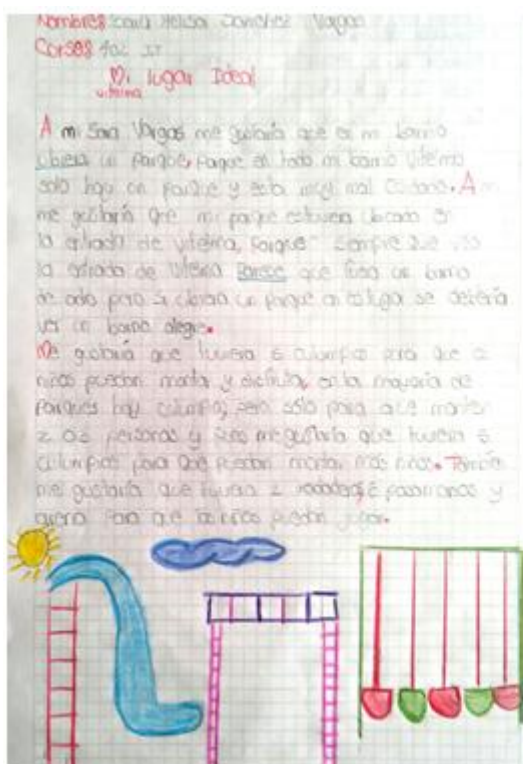 Nombres Sara Sanchez Vargas
Corses 402 JT
Mi lugar Ideal
vitelma
A mi Sara Vargas me gustaria que en mi barrio
ubiera un parque, porque en todo mi barrio vitelma
solo hay un parque y esta muy mal cuidado. A mi
me gustaria que mi parque estuviera ubicado en
la entrada de vitelma, porque siempre que
la entrada de vitelma parece que fuera un barrio
de odio pero si ubieran un parque en se deberia
ver un barrio alegre.
Me gustaria que tuviera 5 columpios para que
niños puedan montar y disfrutar, en la mayoria de
parques hay columpios, pero solo para que monten
2 personas y me gustaria que tuviera 5
columpios para que puedan montar más niños. Tambien
me gustaria que tuviera 2 pasamanos y
arena para que los niños puedan jugar.